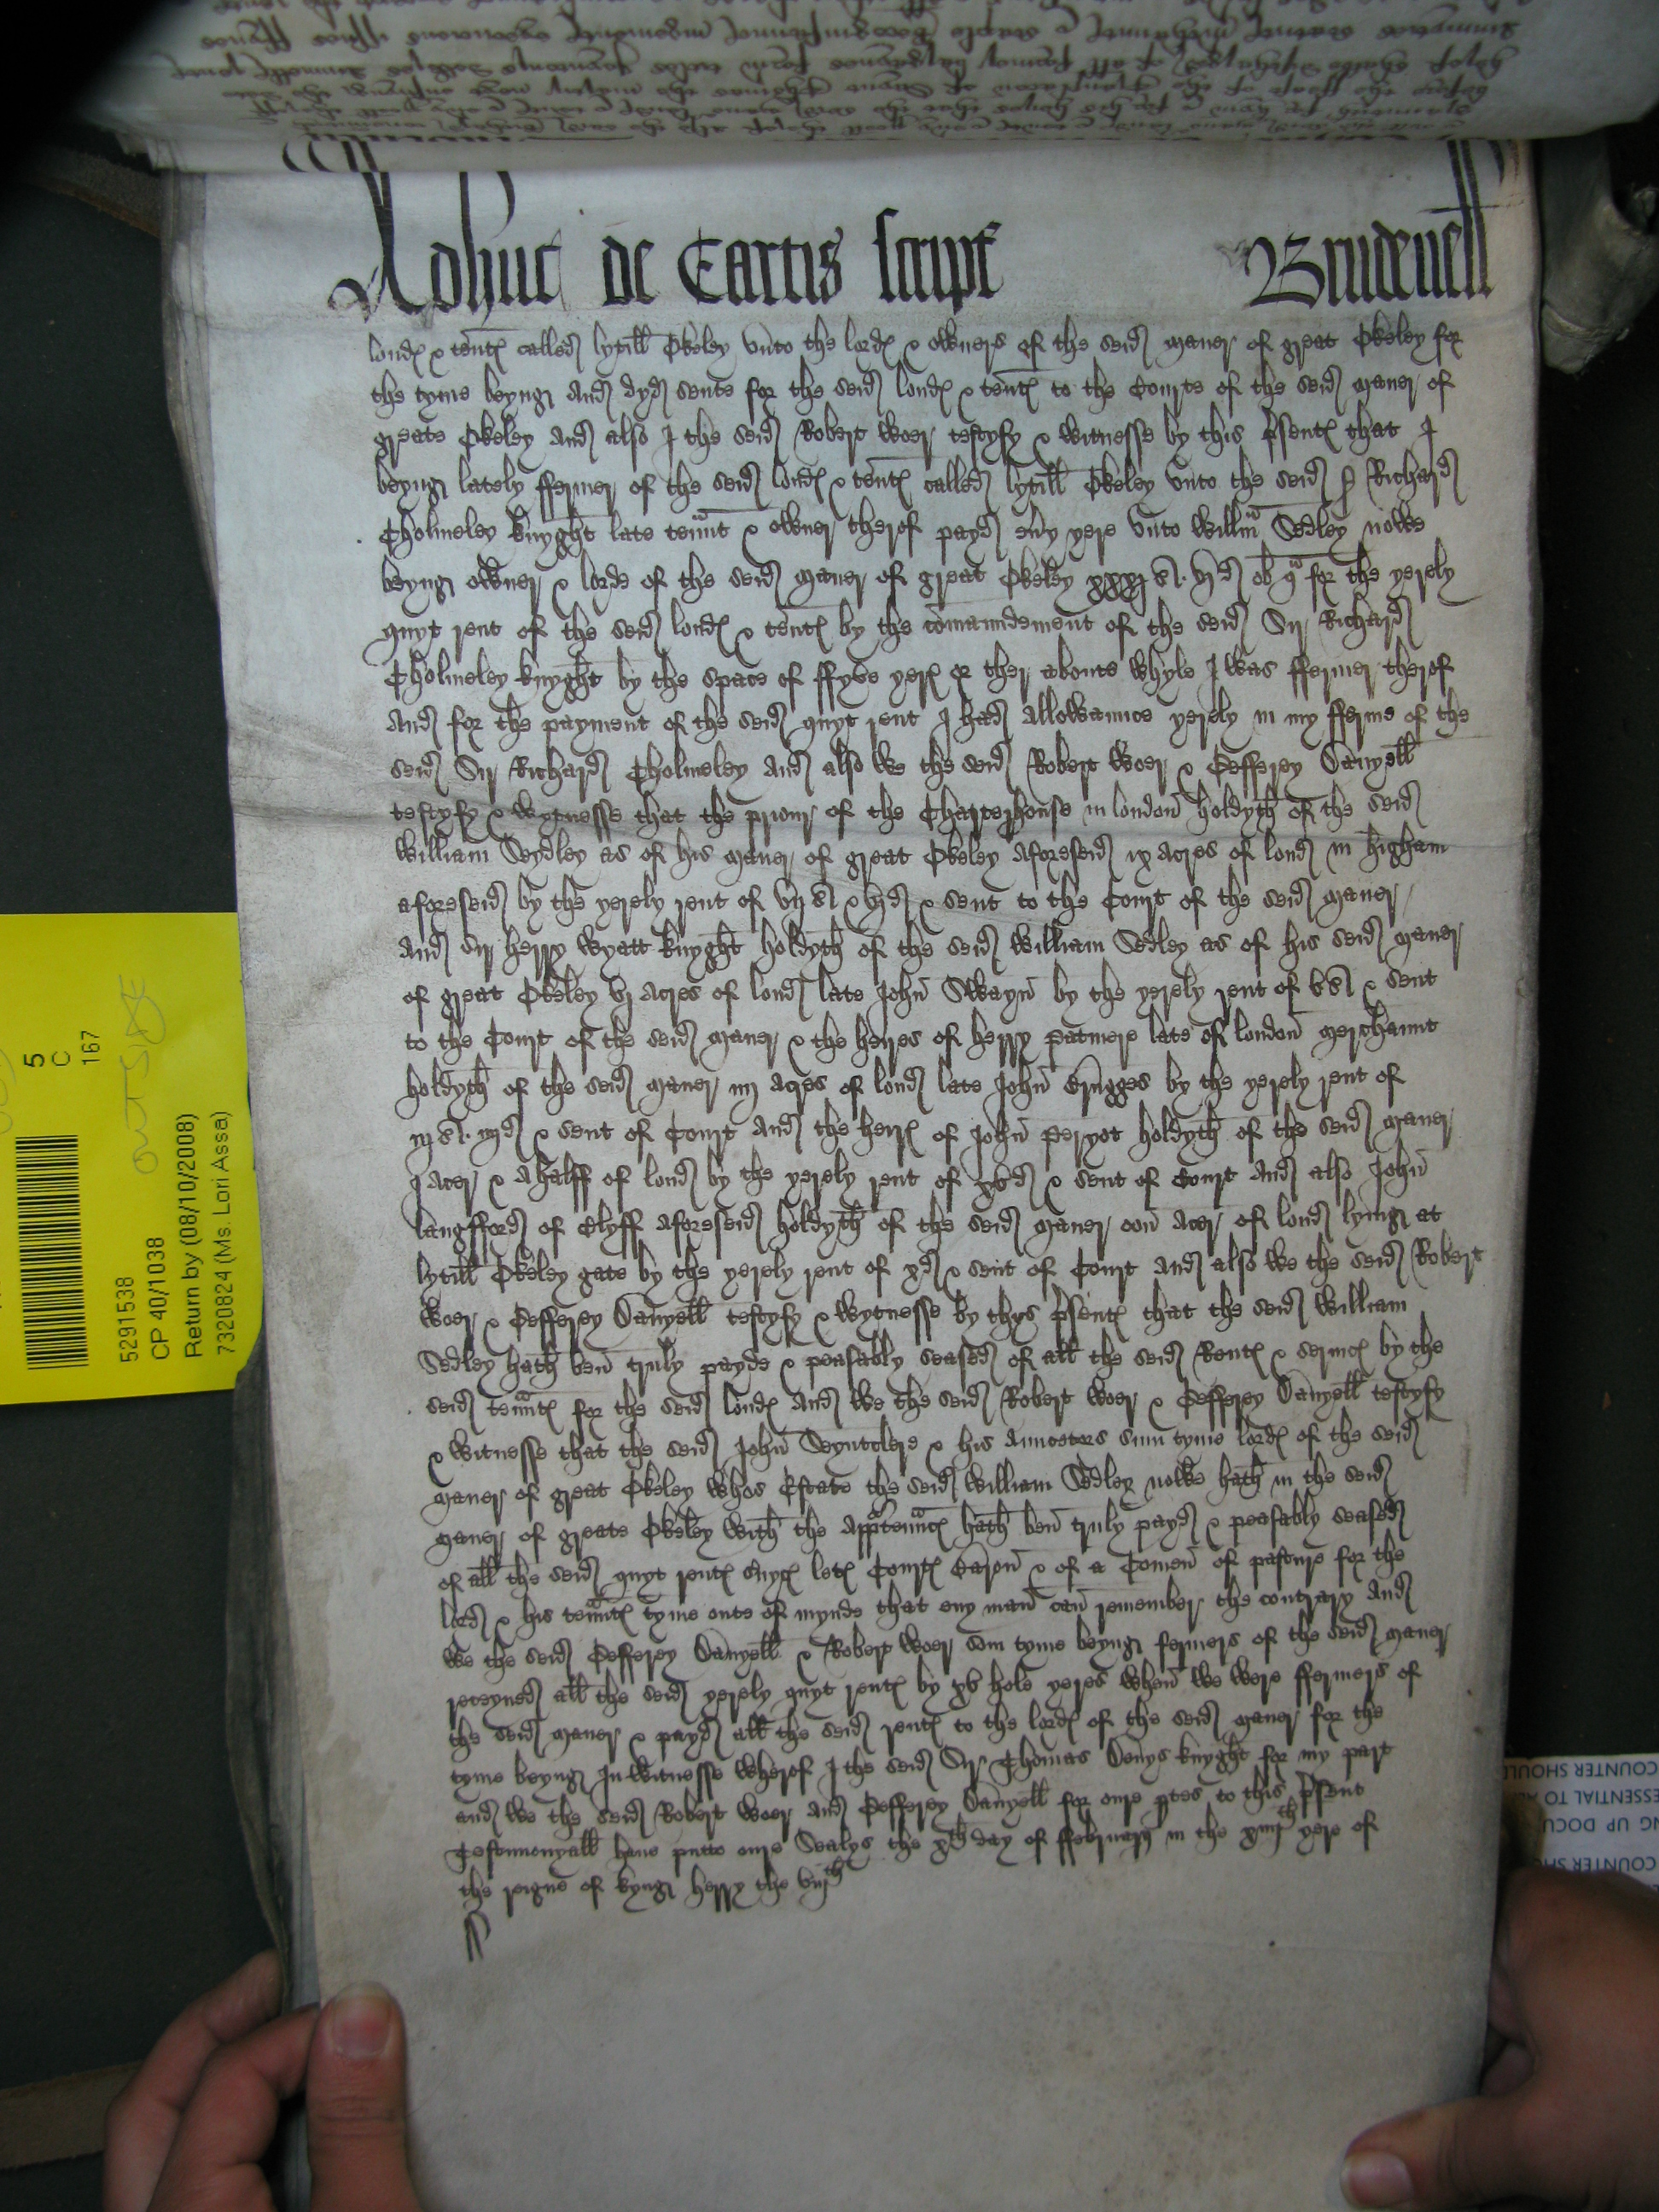 Adhuc de Cartis script Brudenell
lond & tent called lytill Okeley unto the lord & owners of the seid maner of great Okeley for
the tyme beyng and dyd seute for the seid lond & tent to the Courte of the seid maner of
greate Okeley And also I the seid Robert Woer testyfy & witnesse by this psent that I
beyng lately ffermer of the seid lond & tent called lytill Okeley unto the seid S Richard
Cholmeley knyght late tenant & owner therof payd evy yere unto Willm Sedley nowe
beyng owner & lorde of the seid maner of great Okeley xxxj s. vj d ob qa for the yerely
quyt rent of the seid lond & tent by the comaundement of the seid Sir Richard
Cholmeley knyght by the space of ffyve yer or ther aboute whyle I was ffermer therof
And for the payment of the seid quyt rent I had allowaunce yerely in my fferme of the
seid Sir Richard Cholmeley And also we the seid Robert Woer & Gefferey Danyell
testyfy & wytnesse that the priour of the Charterhouse in london holdyth of the seid
William Seydley as of his maner of great Okeley aforeseid ix acres of lond in higham
aforeseid by the yerely rent of vij s & vj d & seut to the Court of the seid maner
And Sir herry Wyatt knyght holdyth of the seid William Sedley as of his seid maner
of great Okeley vj acres of lond late John Swayn by the yerely rent of v s & seut
to the Court of the seid maner & the heires of herry patmere late of london merchaunt
holdyth of the seid maner iiij acres of lond late John Brugges by the yerely rent of
iij s. iiij d & seut of Court And the heir of John Peryot holdyth of the seid maner
j acer & a halff of lond by the yerely rent of xv d & seut of Court And also John
langfford of Clyff aforeseid holdyth of the seid maner oon acer of lond lying at
lytill Okeley gate by the yerely rent of x d & seut of Court And also we the seid Robert
Woer & Gefferey Danyell testyfy & wytnesse by thys psent that the seid William
Sedley hath ben truly payde & peasably seased of all the seid Rent & servic by the
seid tenant for the seid lond And we the seid Robert Woer & Gefferey Danyell testyfy
& witnesse that the seid John Seyntclere & his Auncetors sum tyme lord of the seid
maner of great Okeley whos Estate the seid William Sedley nowe hath in the seid
maner of greate Okeley with the apptenanc hath ben truly payd & peasably seased
of all the seid quyt rent let Court baron & of a Comen of pasture for the
lord & his tenant tyme oute of mynde that eny man can remember the contrary And
we the seid Gefferey Danyell & Robert Woer som tyme beyng fermers of the seid maner
receyved all the seid yerely quyt rent by xv hole yeres when we were ffermers of
the seid maner & payd all the seid rent to the lord of the seid maner for the
tyme beyng In witnesse wherof I the seid Sir Thomas Denys knyght for my part
and we the seid Robert Woer and Gefferey Danyell for oure ptes to this psent
Testimonyall have putto oure Sealys the xth day of ffebruary in the xiiijth yere of
the reigne of kyng herry the viijth
5
C
167
OUTSIDE
5291538
CP 40/1038
Return by (08/10/2008)
7320824 (Ms. Lori Assa)
COUNTER SHOULD
ESSENTIAL TO
UP DOCU
COUNTER